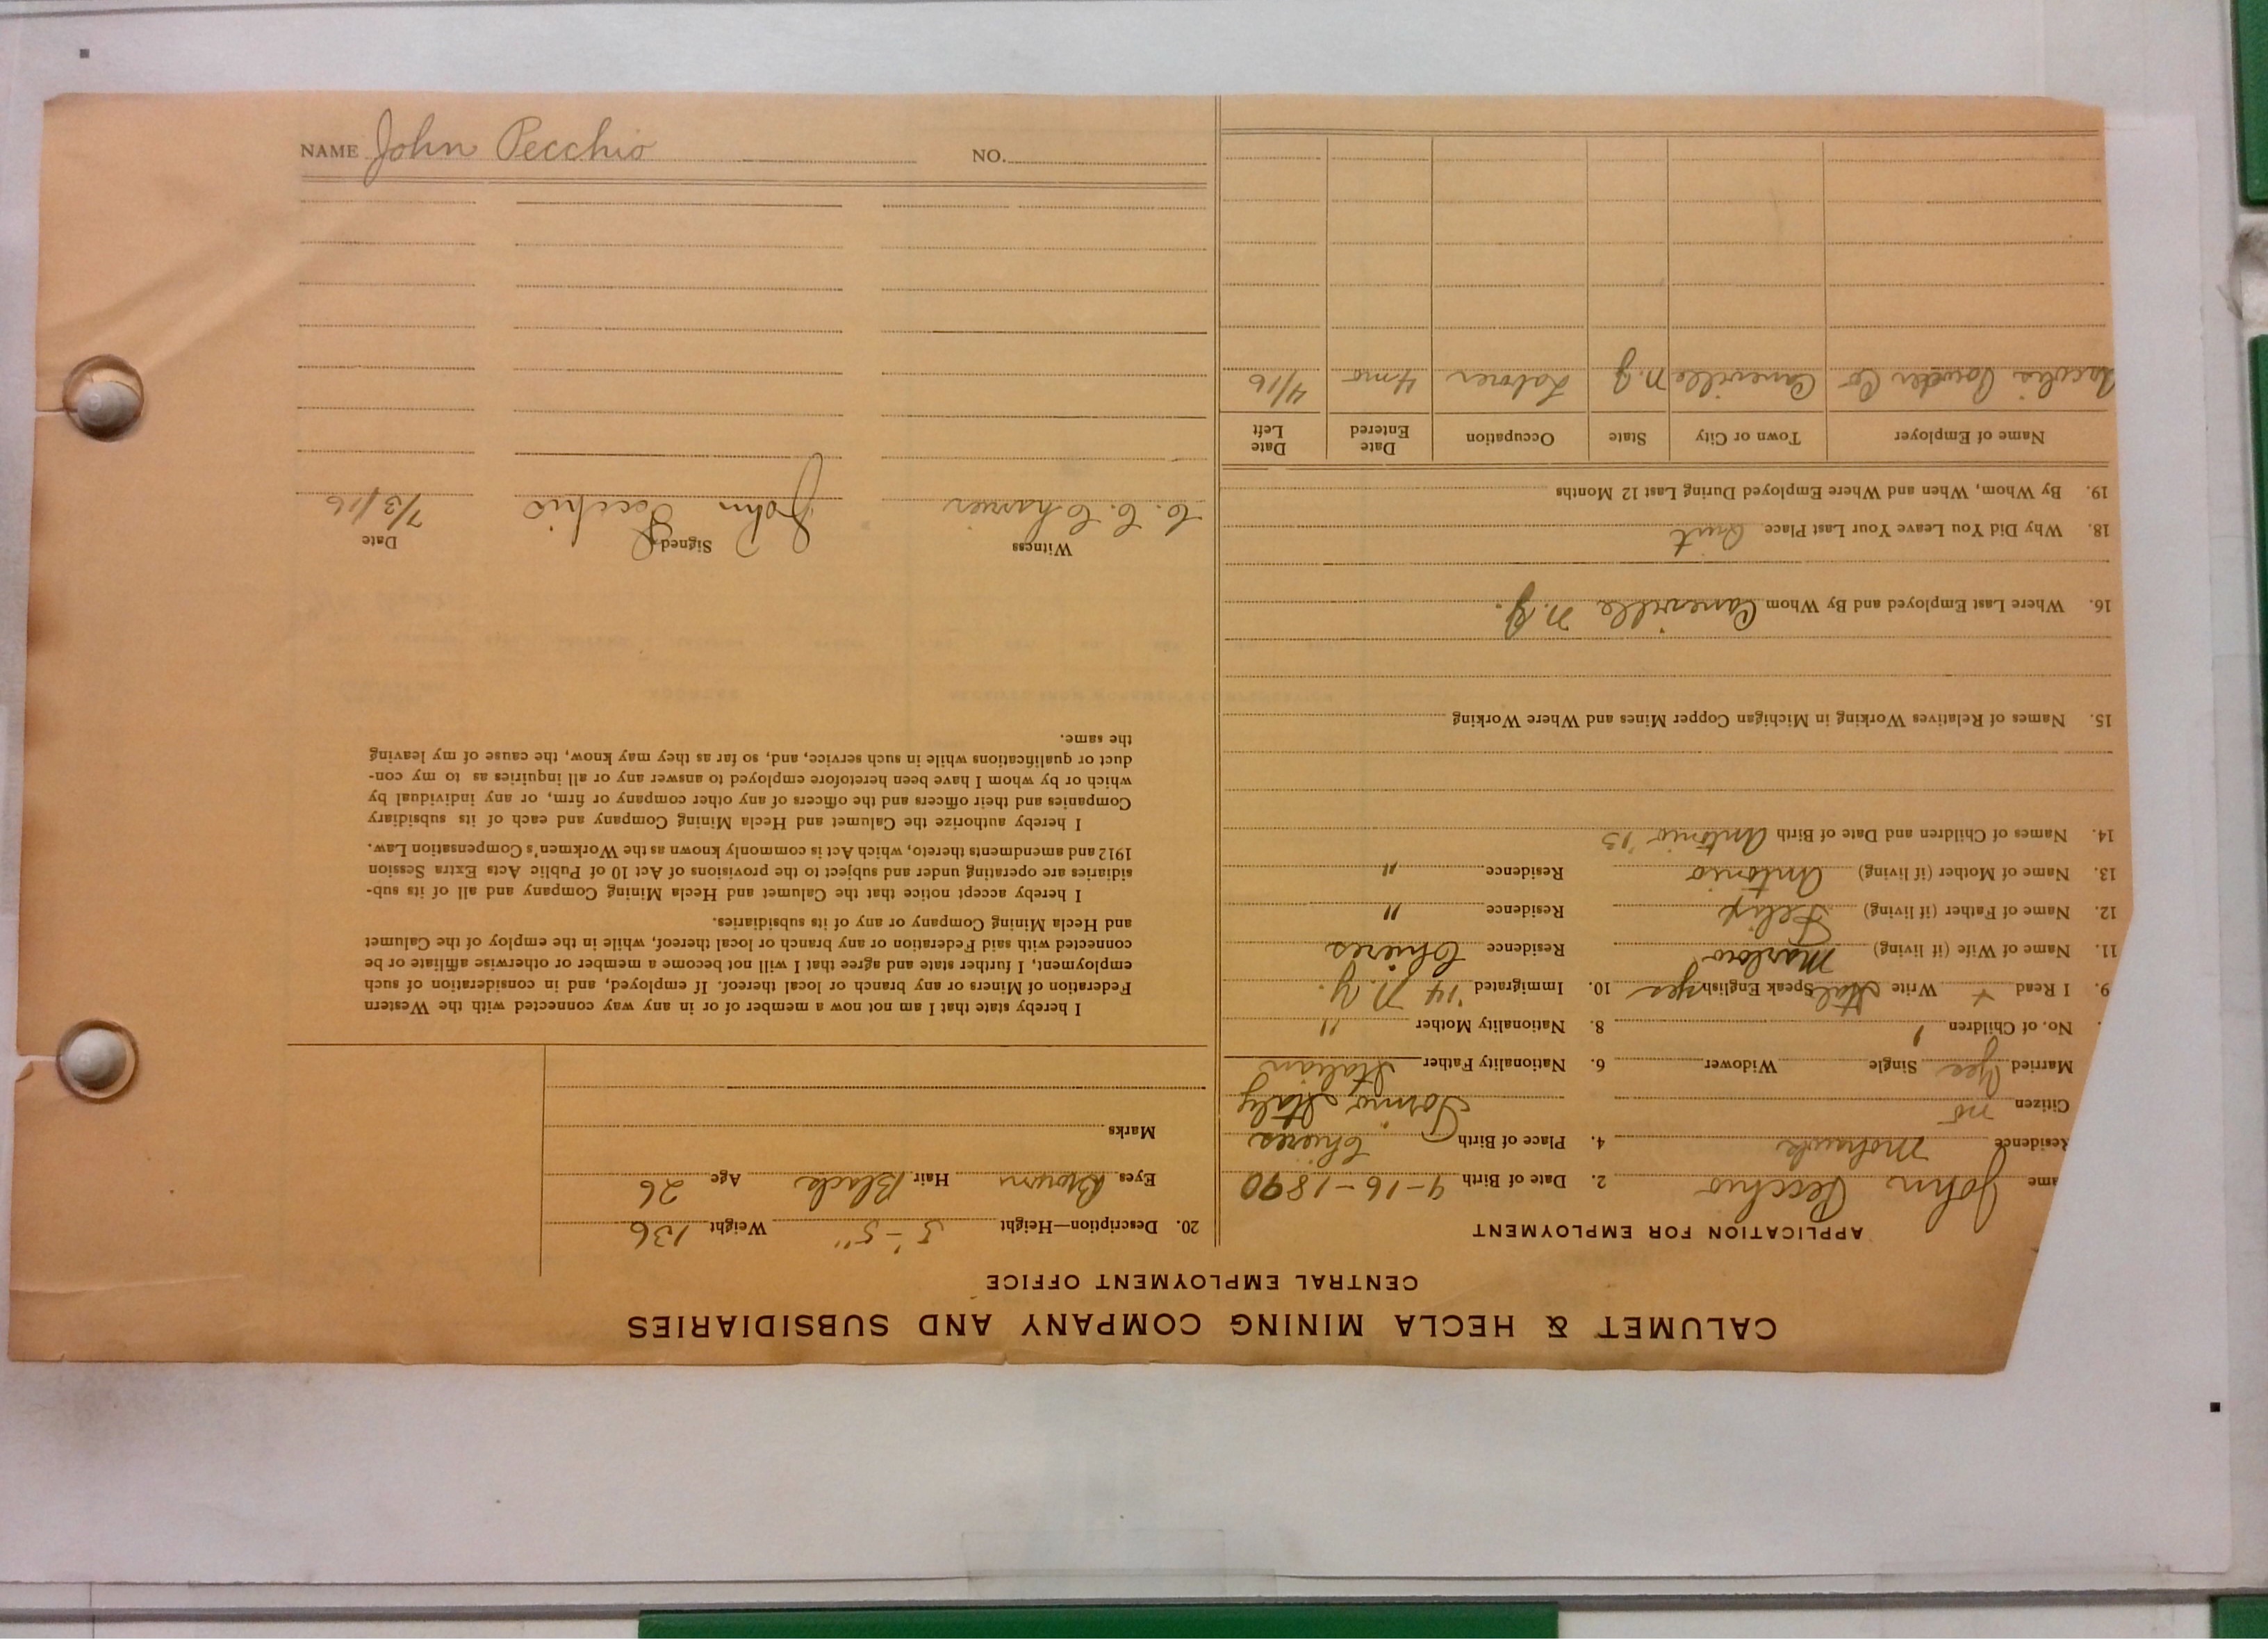 CALUMET & HECLA MINING COMPANY AND SUBSIDIARIES
CENTRAL EMPLOYMENT OFFICE
APPLICATION FOR EMPLOYMENT
ame John Pecchio 2. Date of Birth 4-16-1890
Residence Mohawk 4. Place of Birth Chieres
Citizen no Torino Italy
Married Yes Single Widower 6. Nationality Father Italian
No. of Children 1 8. Nationality Mother "
9. I Read + Write Ital Speak English yes 10. Immigrated '14 N.Y.
11. Name of Wife (if living) Residence Chieres
12. Name of Father (if living) Felix Residence "
13. Name of Mother (if living) Antonio Residence "
14. Names of Children and Date of Birth Antonio '13
15. Names of Relatives Working in Michigan Copper Mines and Where Working
16. Where Last Employed and By Whom Caneville N.J.
18. Why Did You Leave Your Last Place Quit
19. By Whom, When and Where Employed During Last 12 Months
Name of Employer Town or City State Occupation Date Entered Date Left
Powder Co Caneville N.J. Laborer 4 mo 4/16
20. Description—Height 5'-5" Weight 136
Eyes Brown Hair Black Age 26
Marks
I hereby state that I am not now a member of or in any way connected with the Western
Federation of Miners or any branch or local thereof. If employed, and in consideration of such
employment, I further state and agree that I will not become a member or otherwise affiliate or be
connected with said Federation or any branch or local thereof, while in the employ of the Calumet
and Hecla Mining Company or any of its subsidiaries.
I hereby accept notice that the Calumet and Hecla Mining Company and all of its sub-
sidiaries are operating under and subject to the provisions of Act 10 of Public Acts Extra Session
1912 and amendments thereto, which Act is commonly known as the Workmen's Compensation Law.
I hereby authorize the Calumet and Hecla Mining Company and each of its subsidiary
Companies and their officers and the officers of any other company or firm, or any individual by
which or by whom I have been heretofore employed to answer any or all inquiries as to my con-
duct or qualifications while in such service, and, so far as they may know, the cause of my leaving
the same.
Witness Signed Date
C. C. John Pecchio 7/3/16
NAME John Pecchio NO.